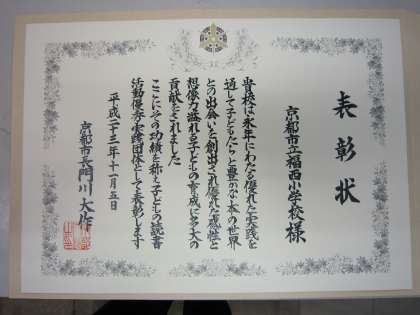 表彰状
京都市立福西小学校様
貴校は永年にわたる優れた実践を
通して子どもたちと豊かな本の世界
との出会いを創出され優れた感性と
想像力溢れる子どもの育成に多大の
貢献をされました
ここにその功績を称え子どもの読書
活動優秀実践団体として表彰します
平成二十三年十一月五日
京都市長門川大作